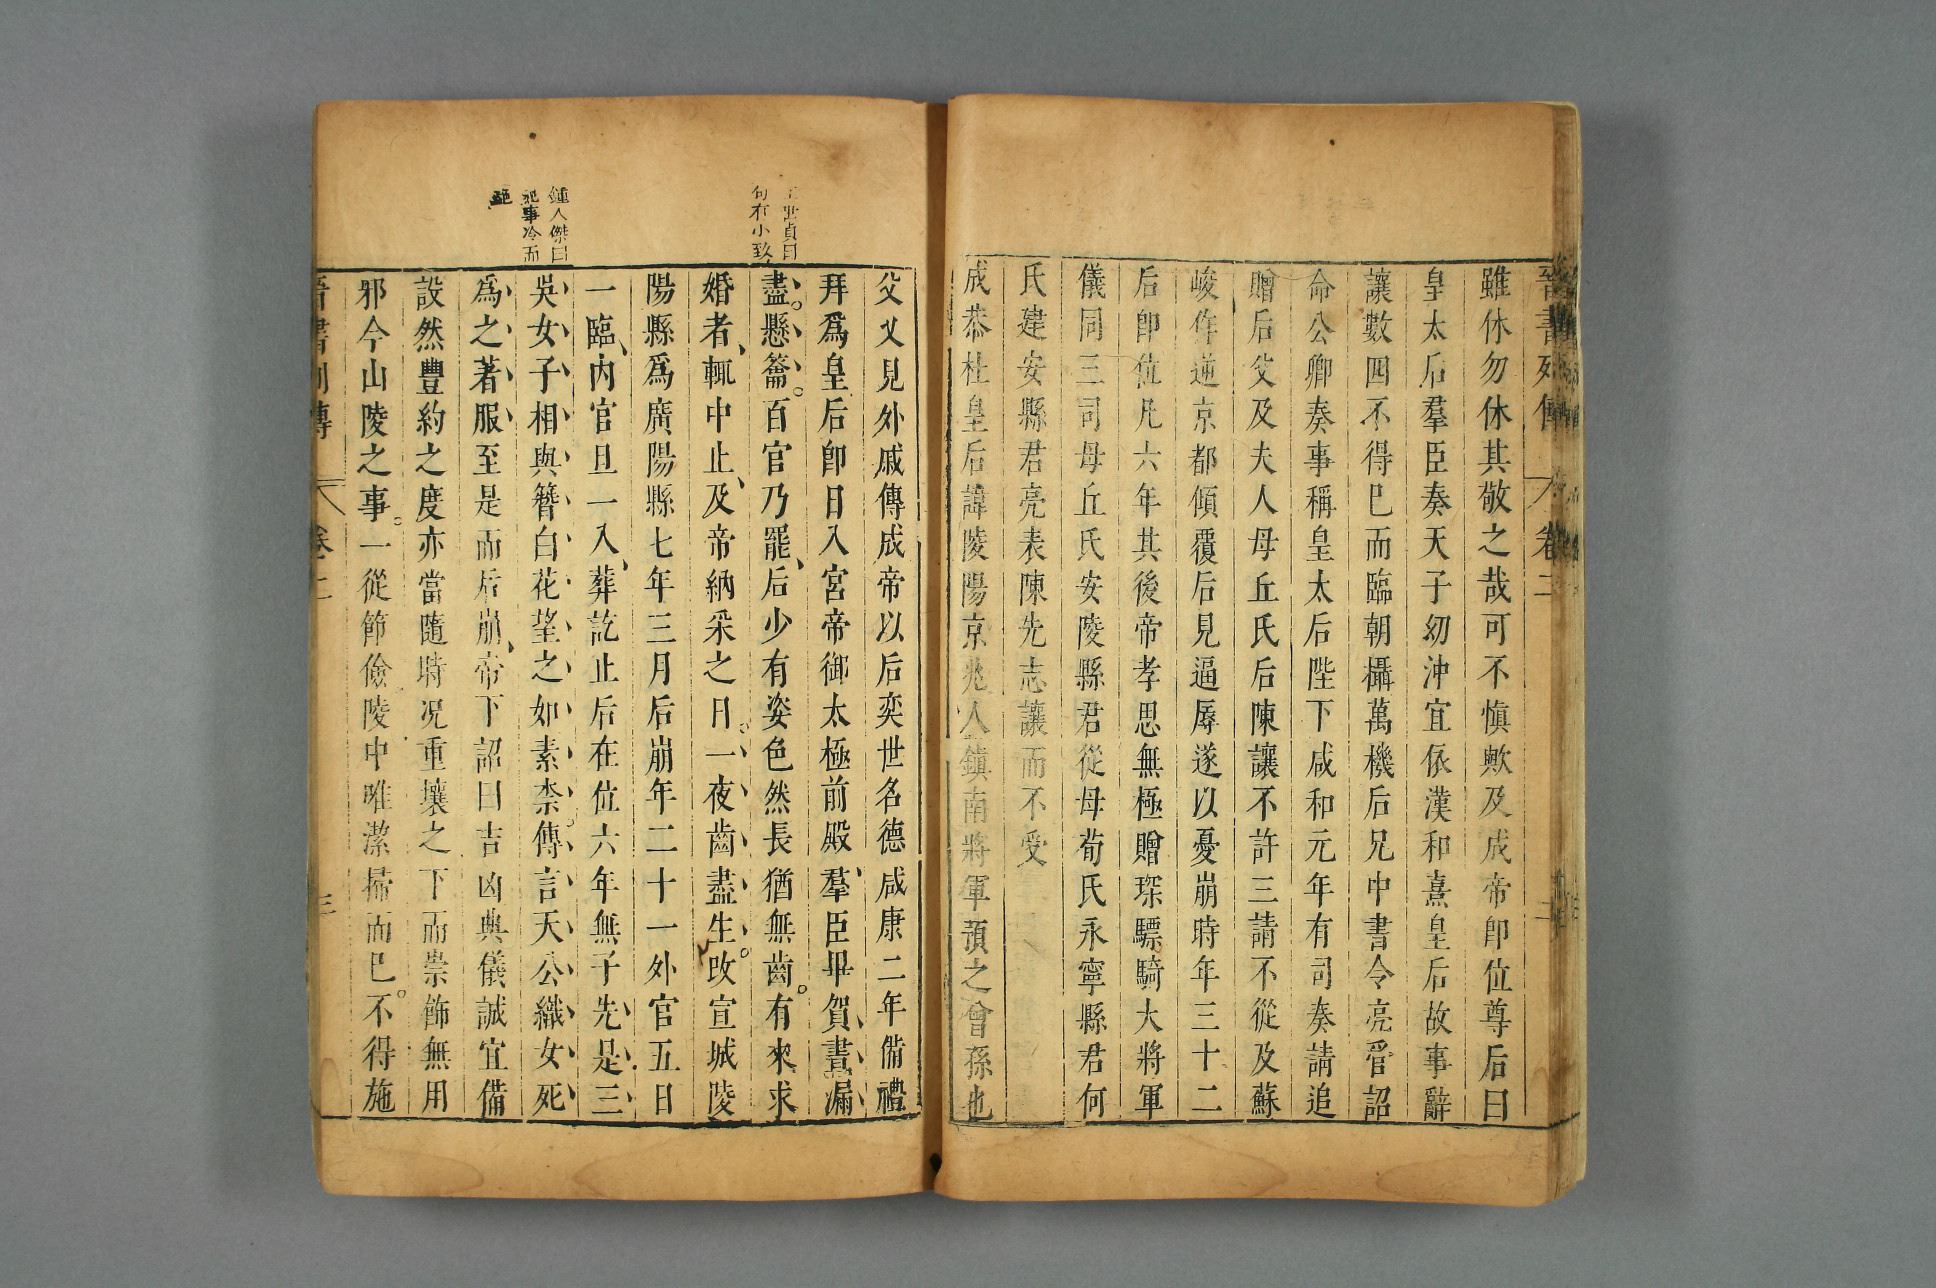 晉書列傳 卷二 二
雖休勿休其敬之哉可不慎歟及成帝卽位尊后曰
皇太后羣臣奏天子幼沖宜依漢和熹皇后故事辭
讓數四不得已而臨朝攝萬機后兄中書令亮管詔
命公卿奏事稱皇太后陛下咸和元年有司奏請追
贈后父及夫人毋丘氏后陳讓不許三請不從及蘇
峻作逆京都傾覆后見逼辱遂以憂崩時年三十二
后卽位凡六年其後帝孝思無極贈琛驃騎大將軍
儀同三司毋丘氏安陵縣君從母荀氏永寧縣君何
氏建安縣君亮表陳先志讓而不受
成恭杜皇后諱陵陽京兆人鎮南將軍預之曾孫也
王世貞曰
句有小致
父乂見外戚傳成帝以后奕世名德咸康二年備禮
拜爲皇后卽日入宮帝御太極前殿羣臣畢賀晝漏
盡懸籥百官乃罷后少有姿色然長猶無齒有來求
婚者輒中止及帝納采之日一夜齒盡生改宣城陵
陽縣爲廣陽縣七年三月后崩年二十一外官五日
一臨內官旦一入葬訖止后在位六年無子先是三
鍾人傑曰
紀事冷而
艷
吳女子相與簪白花望之如素柰傳言天公織女死
爲之著服至是而后崩帝下詔曰吉凶典儀誠宜備
設然豐約之度亦當隨時況重壤之下而崇飾無用
邪今山陵之事一從節儉陵中唯潔掃而已不得施
晉書列傳 卷二 三